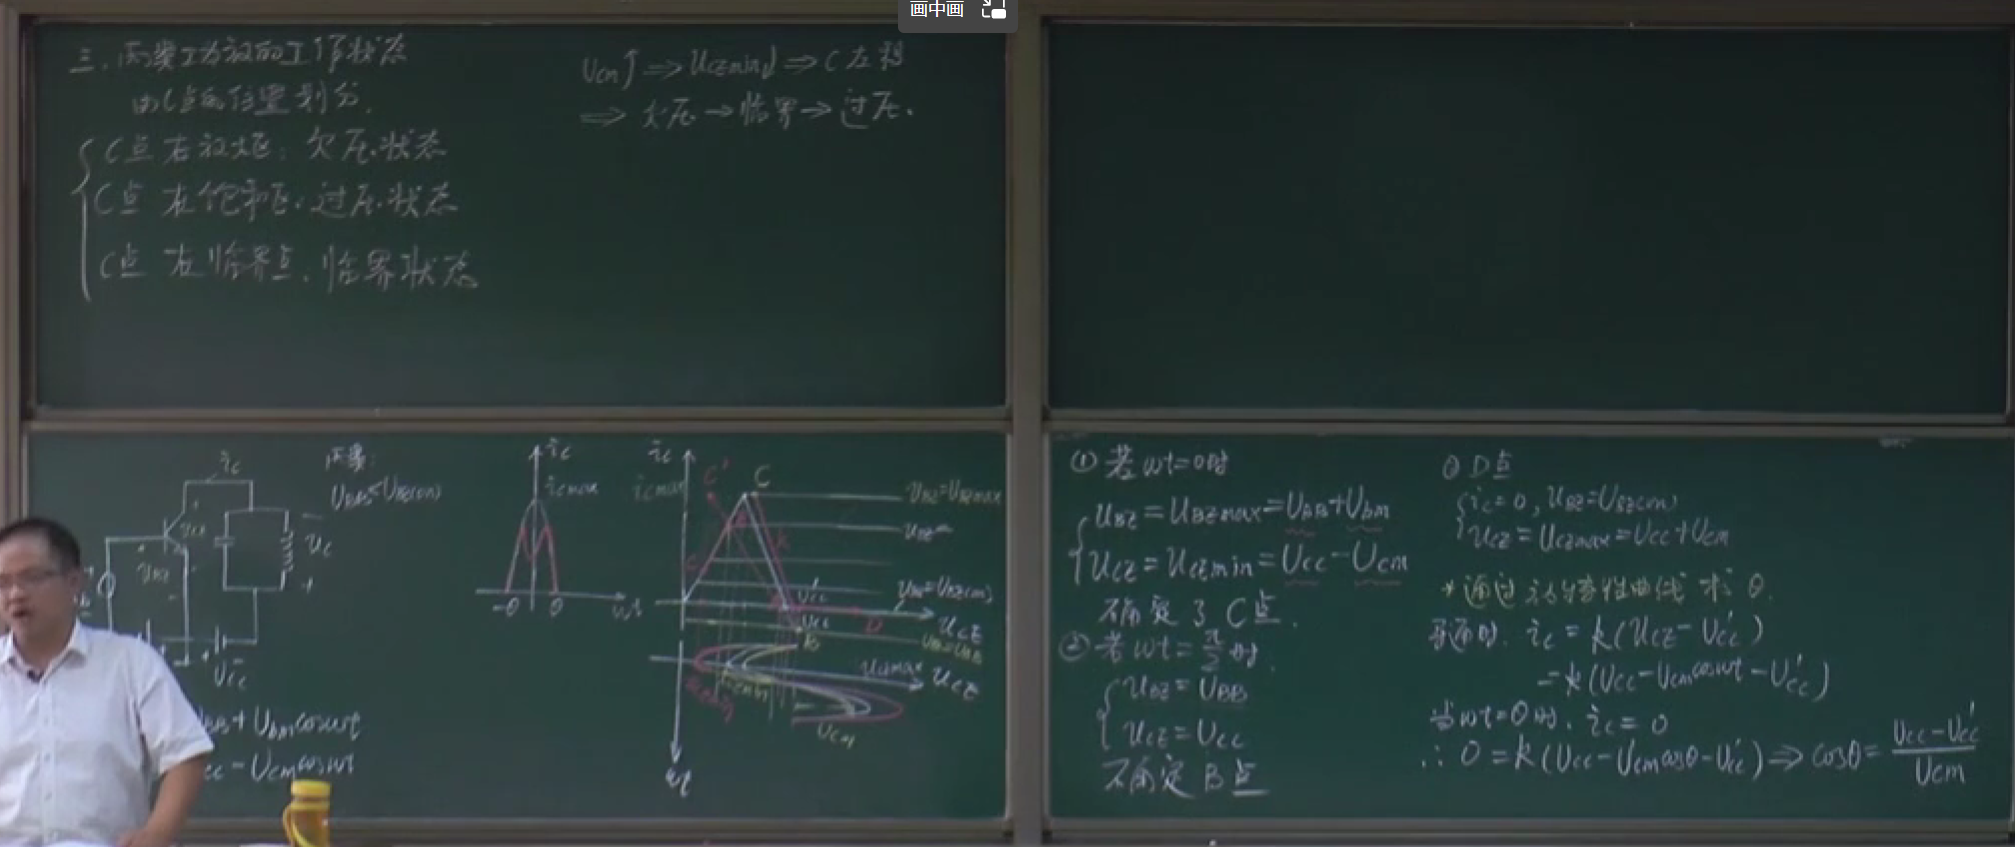 画中画
三.丙类功放的工作状态
由C点的位置划分.
C点在放大区:欠压状态
C点在饱和区.过压状态
C点在临界点.临界状态
Ucm↑⇒UCEmin↓⇒C左移
⇒欠压→临界→过压.
ic
丙类:
UBB<UBE(on)
uc
Ucc
UBB+Ubmcosωt
cc-Ucmcosωt
ic
icmax
-θ
θ
ωt
ic
icmax
C'
C
uBE=uBEmax
uBE
uBE=UBE(on)
Ucc'
Ucc
D
uCE
B
uCEmax
uCE
Ucm
ωt
①若ωt=0时
uBE=uBEmax=UBB+Ubm
uCE=uCEmin=Ucc-Ucm
确定了C点.
②若ωt=π/2时.
uBE=UBB
uCE=Ucc
确定B点
D点
ic=0,uBE=UBE(on)
uCE=uCEmax=Ucc+Ucm
*通过动特性曲线求θ.
导通时.ic=k(uCE-Ucc')
=k(Ucc-Ucmcosωt-Ucc')
当ωt=θ时.ic=0
∴0=k(Ucc-Ucmcosθ-Ucc')⇒cosθ=(Ucc-Ucc')/Ucm